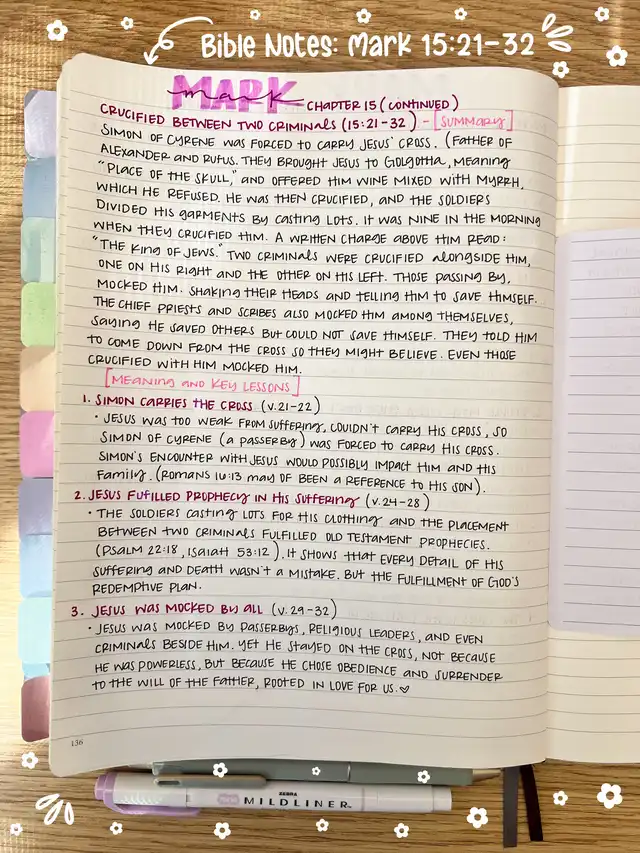 Bible Notes: Mark 15:21-32
MARK
mark
CHAPTER 15 (CONTINUED)
CRUCIFIED BETWEEN TWO CRIMINALS (15:21-32) - [SUMMARY]
SIMON OF CYRENE WAS FORCED TO CARRY JESUS' CROSS. (FATHER OF
ALEXANDER AND RUFUS. THEY BROUGHT JESUS TO GOLGOTHA, MEANING
"PLACE OF THE SKULL," AND OFFERED HIM WINE MIXED WITH MYRRH,
WHICH HE REFUSED. HE WAS THEN CRUCIFIED, AND THE SOLDIERS
DIVIDED HIS GARMENTS BY CASTING LOTS. IT WAS NINE IN THE MORNING
WHEN THEY CRUCIFIED HIM. A WRITTEN CHARGE ABOVE HIM READ:
"THE KING OF JEWS." TWO CRIMINALS WERE CRUCIFIED ALONGSIDE HIM,
ONE ON HIS RIGHT AND THE OTHER ON HIS LEFT. THOSE PASSING BY,
MOCKED HIM. SHAKING THEIR HEADS AND TELLING HIM TO SAVE HIMSELF.
THE CHIEF PRIESTS AND SCRIBES ALSO MOCKED HIM AMONG THEMSELVES,
SAYING HE SAVED OTHERS BUT COULD NOT SAVE HIMSELF. THEY TOLD HIM
TO COME DOWN FROM THE CROSS SO THEY MIGHT BELIEVE. EVEN THOSE
CRUCIFIED WITH HIM MOCKED HIM.
[MEANING AND KEY LESSONS]
1. SIMON CARRIES THE CROSS (V.21-22)
• JESUS WAS TOO WEAK FROM SUFFERING, COULDN'T CARRY HIS CROSS, SO
SIMON OF CYRENE (A PASSERBY) WAS FORCED TO CARRY HIS CROSS.
SIMON'S ENCOUNTER WITH JESUS WOULD POSSIBLY IMPACT HIM AND HIS
FAMILY. (ROMANS 16:13 MAY OF BEEN A REFERENCE TO HIS SON).
2. JESUS FULFILLED PROPHECY IN HIS SUFFERING (V.24-28)
• THE SOLDIERS CASTING LOTS FOR HIS CLOTHING AND THE PLACEMENT
BETWEEN TWO CRIMINALS FULFILLED OLD TESTAMENT PROPHECIES.
(PSALM 22:18, ISAIAH 53:12). IT SHOWS THAT EVERY DETAIL OF HIS
SUFFERING AND DEATH WASN'T A MISTAKE. BUT THE FULFILLMENT OF GOD'S
REDEMPTIVE PLAN.
3. JESUS WAS MOCKED BY ALL (V.29-32)
• JESUS WAS MOCKED BY PASSERBYS, RELIGIOUS LEADERS, AND EVEN
CRIMINALS BESIDE HIM. YET HE STAYED ON THE CROSS, NOT BECAUSE
HE WAS POWERLESS, BUT BECAUSE HE CHOSE OBEDIENCE AND SURRENDER
TO THE WILL OF THE FATHER, ROOTED IN LOVE FOR US. ♡
136
ZEBRA
MILDLINER